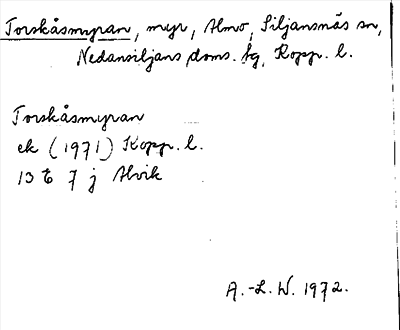 Torskåsmyran, myr, Almo, Siljansnäs sn,
Nedansiljans doms. fg, Kopp. l.
Torskåsmyran
ek (1971) Kopp. l.
13 E 7 j Alvik
A.-L. W. 1972.